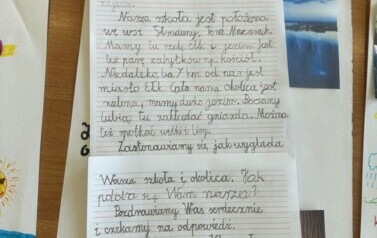 Nasza szkoła jest położona
we wsi Straduny,
Mamy tu rzekę Ełk i jezioro. Jest
też parę zabytków np. kościół.
Niedaleko, bo 7 km od nas jest
miasto Ełk. Cała nasza okolica jest
zielona, mamy dużo jezior. Bociany
lubią tu zakładać gniazda. Można
też spotkać wilki i lisy.
Zastanawiamy się jak wygląda
Wasza szkoła i okolica. Jak
podoba się Wam nasza?
Pozdrawiamy Was serdecznie
i czekamy na odpowiedź.